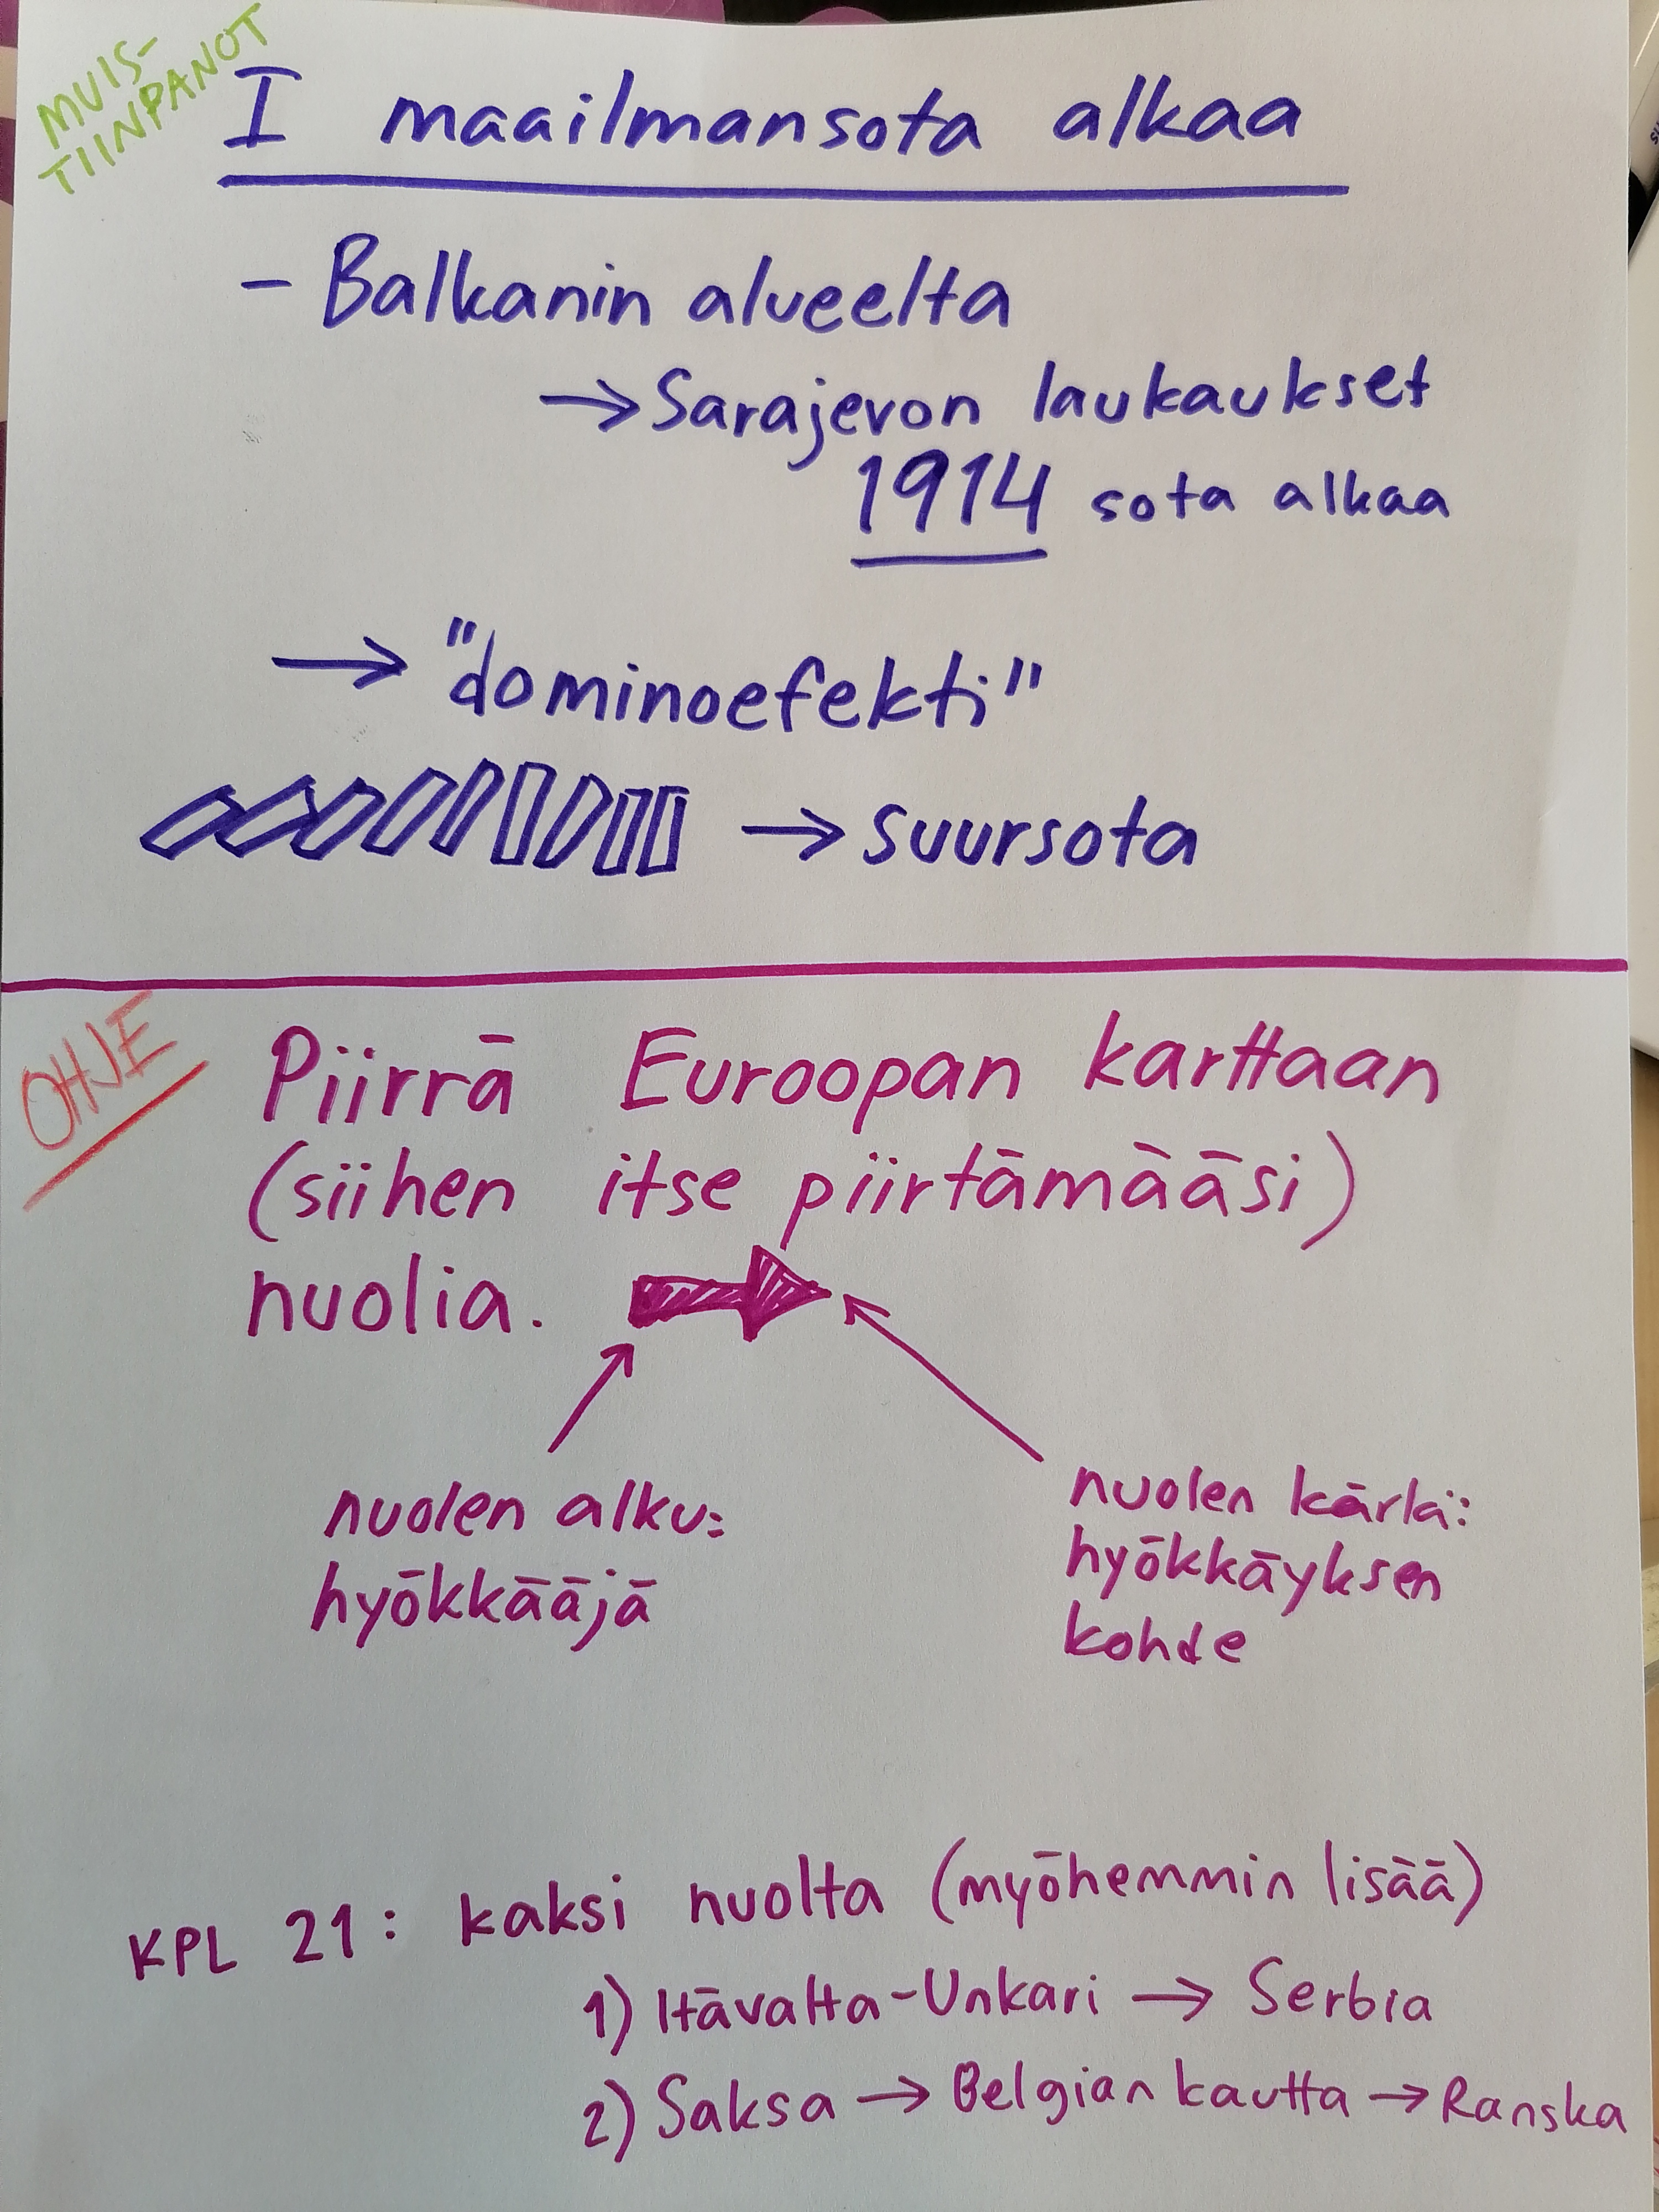 MUIS-
TIINPANOT
I maailmansota alkaa
- Balkanin alueelta
→ Sarajevon laukaukset
1914 sota alkaa
→ "dominoefekti"
→ suursota
OHJE
Piirrä Euroopan karttaan
(siihen itse piirtämääsi)
nuolia.
nuolen alku:
hyökkääjä
nuolen kärki:
hyökkäyksen
kohde
KPL 21: kaksi nuolta (myöhemmin lisää)
1) Itävalta-Unkari → Serbia
2) Saksa → Belgian kautta → Ranska